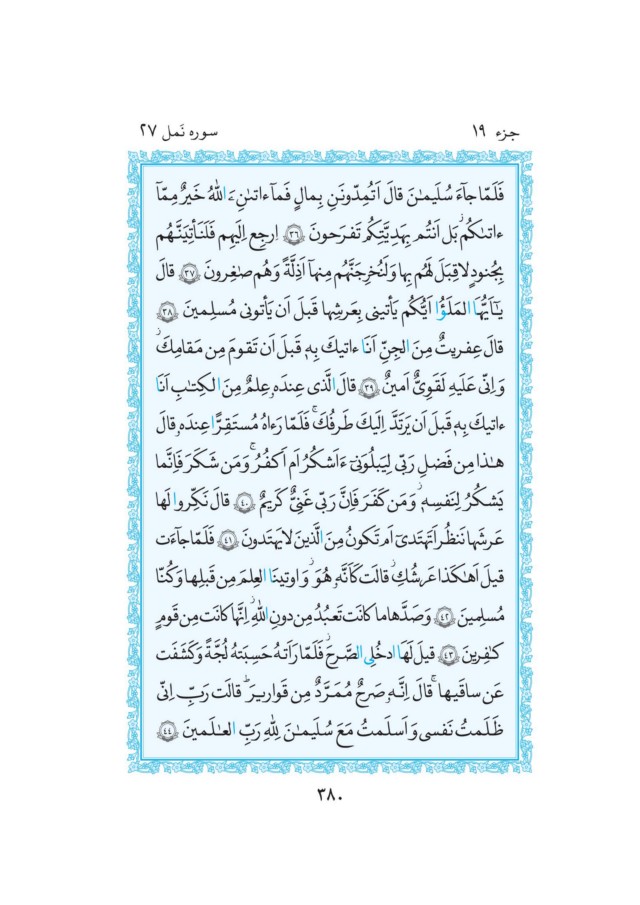 جزء ۱۹
سوره نَمل ۲۷
فَلَمّا جآءَ سُلَيمٰنَ قالَ اَتُمِدّونَنِ بِمالٍ فَمآ ءاتىٰنِۦَ اللّٰهُ خَيرٌ مِمّآ
ءاتىٰكُم ۚ بَل اَنتُم بِهَدِيَّتِكُم تَفرَحونَ ۝۳۶ اِرجِع اِلَيهِم فَلَنَأتِيَنَّهُم
بِجُنودٍ لا قِبَلَ لَهُم بِها وَلَنُخرِجَنَّهُم مِنهآ اَذِلَّةً وَهُم صٰغِرونَ ۝۳۷ قالَ
يٰٓاَيُّهَا المَلَؤُا اَيُّكُم يَأتينى بِعَرشِها قَبلَ اَن يَأتونى مُسلِمينَ ۝۳۸
قالَ عِفريتٌ مِنَ الجِنِّ اَنَا ءاتيكَ بِهٖ قَبلَ اَن تَقومَ مِن مَقامِكَ ۚ
وَ اِنّى عَلَيهِ لَقَوِىٌّ اَمينٌ ۝۳۹ قالَ الَّذى عِندَهٗ عِلمٌ مِنَ الكِتٰبِ اَنَا
ءاتيكَ بِهٖ قَبلَ اَن يَرتَدَّ اِلَيكَ طَرفُكَ ۚ فَلَمّا رَءاهُ مُستَقِرًّا عِندَهٗ قالَ
هٰذا مِن فَضلِ رَبّى لِيَبلُوَنىٓ ءَاَشكُرُ اَم اَكفُرُ ۚ وَمَن شَكَرَ فَاِنَّما
يَشكُرُ لِنَفسِهٖ ۚ وَمَن كَفَرَ فَاِنَّ رَبّى غَنِىٌّ كَريمٌ ۝۴۰ قالَ نَكِّروا لَها
عَرشَها نَنظُر اَتَهتَدىٓ اَم تَكونُ مِنَ الَّذينَ لا يَهتَدونَ ۝۴۱ فَلَمّا جآءَت
قيلَ اَهٰكَذا عَرشُكِ ۚ قالَت كَاَنَّهٗ هُوَ ۚ وَ اوتينَا العِلمَ مِن قَبلِها وَكُنّا
مُسلِمينَ ۝۴۲ وَصَدَّها ما كانَت تَعبُدُ مِن دونِ اللّٰهِ ۚ اِنَّها كانَت مِن قَومٍ
كٰفِرينَ ۝۴۳ قيلَ لَهَا ادخُلِى الصَّرحَ ۚ فَلَمّا رَاَتهُ حَسِبَتهُ لُجَّةً وَكَشَفَت
عَن ساقَيها ۚ قالَ اِنَّهٗ صَرحٌ مُمَرَّدٌ مِن قَواريرَ ۗ قالَت رَبِّ اِنّى
ظَلَمتُ نَفسى وَ اَسلَمتُ مَعَ سُلَيمٰنَ لِلّٰهِ رَبِّ العٰلَمينَ ۝۴۴
۳۸۰